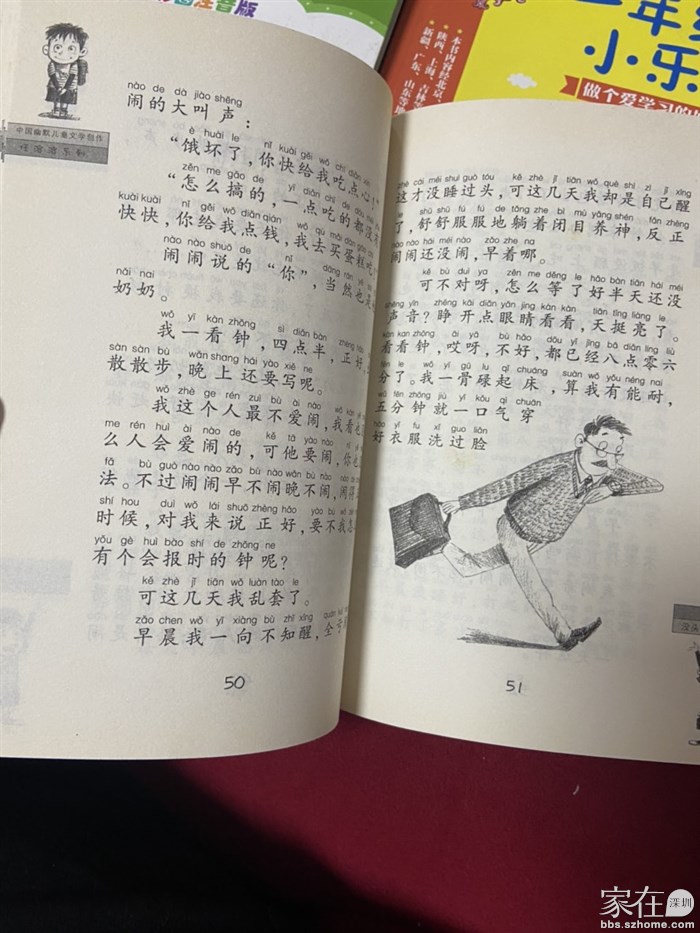 注音版
本书内容经北京、
陕西、上海、吉林
新疆、广东、
山东等地
小乐
做个爱学习的
中国幽默儿童文学创作
nào de dà jiào shēng
闹的大叫声：
è huài le nǐ kuài gěi wǒ chī diǎn xīn
“饿坏了，你快给我吃点心！”
zěn me gǎo de yì diǎn chī de dōu méi
“怎么搞的，一点吃的都没有
kuài kuài nǐ gěi wǒ diǎn qián wǒ qù mǎi dàn gāo
快快，你给我点钱，我去买蛋糕吃
nào nào shuō de dāng rán yě
闹闹说的“你”，当然也是
nǎi nai
奶奶。
wǒ yí kàn zhōng sì diǎn bàn zhèng hǎo
我一看钟，四点半，正好，
sàn sàn bù wǎn shang hái yào xiě ne
散散步，晚上还要写呢。
wǒ zhè ge rén zuì bú ài nào wǒ kàn
我这个人最不爱闹，我看
me rén huì ài nào de kě tā yào nào
么人会爱闹的，可他要闹，你也
fǎ bú guò nào nào zǎo bú nào wǎn bú nào nào
法。不过闹闹早不闹晚不闹，闹得
shí hou duì wǒ lái shuō zhèng hǎo yào bù
时候，对我来说正好，要不我怎
yǒu ge huì bào shí de zhōng ne
有个会报时的钟呢？
kě zhè jǐ tiān wǒ luàn tào le
可这几天我乱套了。
zǎo chen wǒ yí xiàng bù zhī xǐng quán
早晨我一向不知醒，全亏
50
zhè cái méi shuì guò tóu kě zhè jǐ tiān wǒ què shì zì jǐ xǐng
这才没睡过头，可这几天我却是自己醒
le shū shū fú fú de tǎng zhe bì mù yǎng shén fǎn zhèng
了，舒舒服服地躺着闭目养神，反正
nào nao hái méi nào zǎo zhe na
闹闹还没闹，早着哪。
kě bú duì ya zěn me děng le hǎo bàn tiān hái méi
可不对呀，怎么等了好半天还没
shēng yīn zhēng kāi diǎn yǎn jing kàn kàn tiān tǐng liàng le
声音？睁开点眼睛看看，天挺亮了。
kàn kan zhōng āi yā bù hǎo dōu yǐ jīng bā diǎn líng liù
看看钟，哎呀，不好，都已经八点零六
fēn le wǒ yì gū lù qǐ chuáng suàn wǒ yǒu néng nai
分了。我一骨碌起床，算我有能耐，
wǔ fēn zhōng jiù yì kǒu qì chuān
五分钟就一口气穿
hǎo yī fu xǐ guo liǎn
好衣服洗过脸
51
家在深圳
bbs.szhome.com